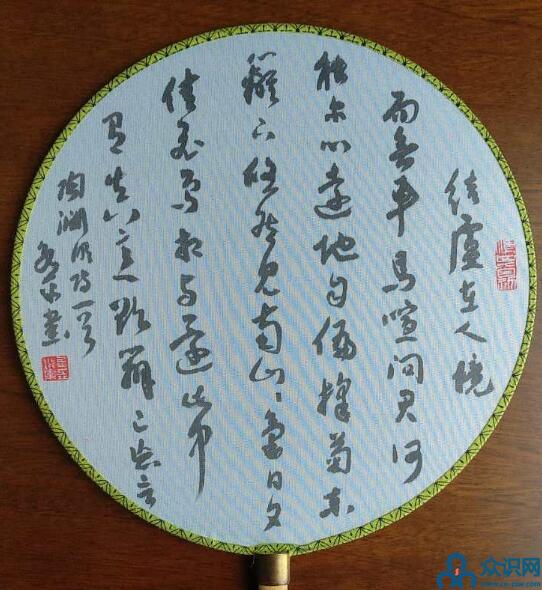 结庐在人境
而无车马喧问君何
能尔心远地自偏採菊东
篱下悠然见南山山气日夕
佳飞鸟相与还此中
有真意欲辨已忘言
陶渊明诗一首
众识网